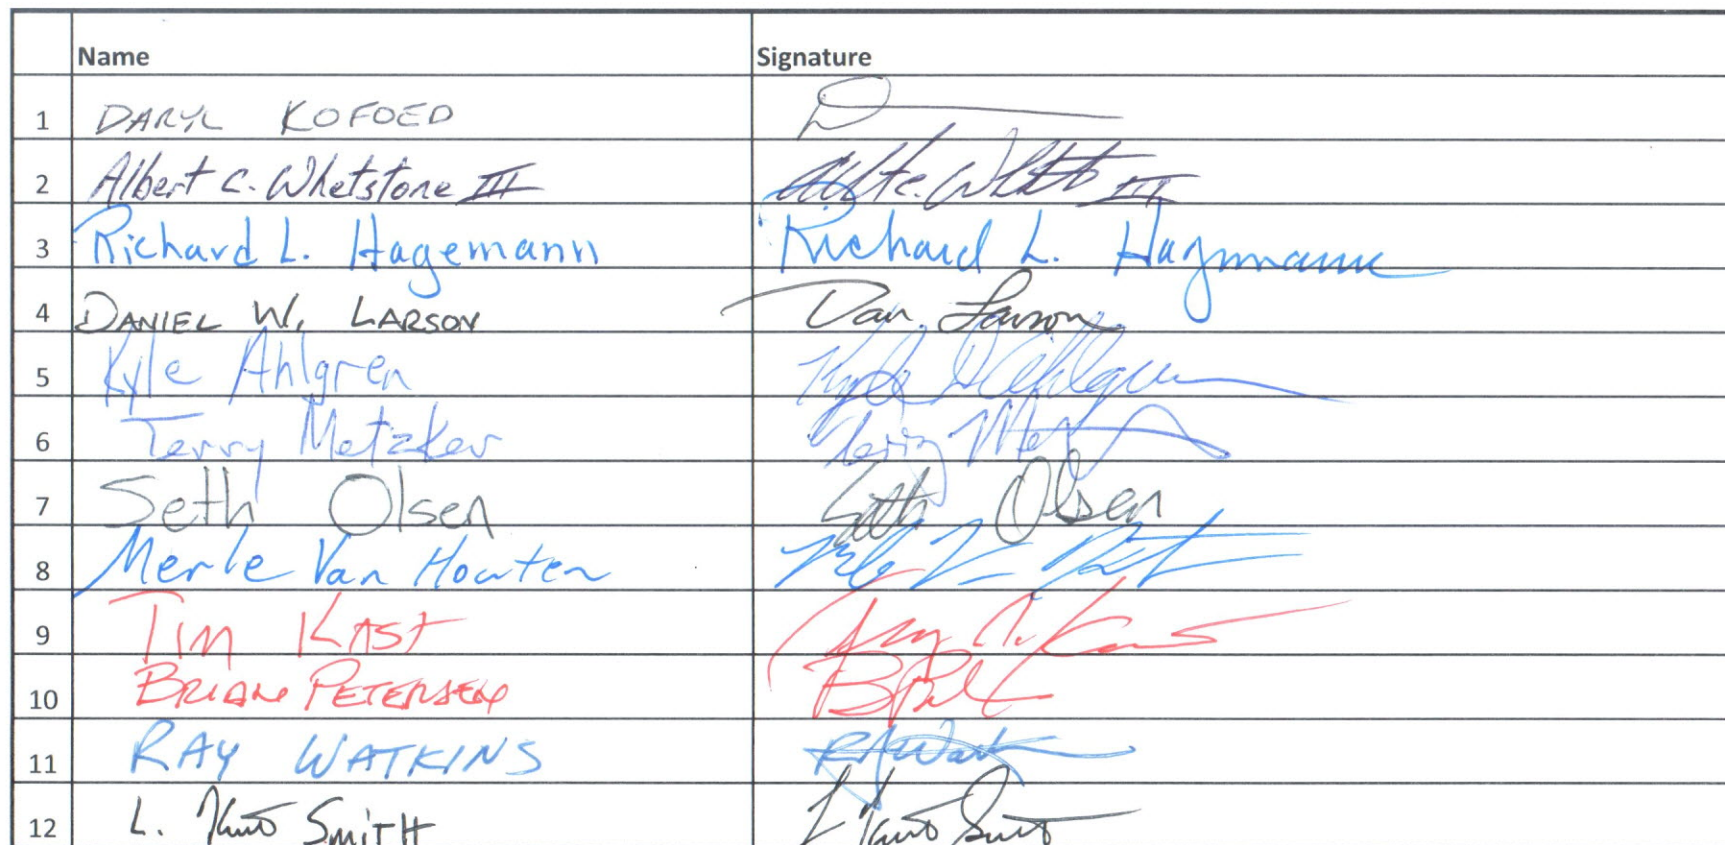 Name Signature
1 DARYL KOFOED D
2 Albert C. Whetstone III III
3 Richard L. Hagemann Richard L. Hagemann
4 DANIEL W. LARSON Dan Larson
5 Kyle Ahlgren Kyle Ahlgren
6 Terry Metzker Terry
7 Seth Olsen Seth Olsen
8 Merle Van Houten
9 TIM KAST
10 BRIAN PETERSEN
11 RAY WATKINS
12 L. SMITH